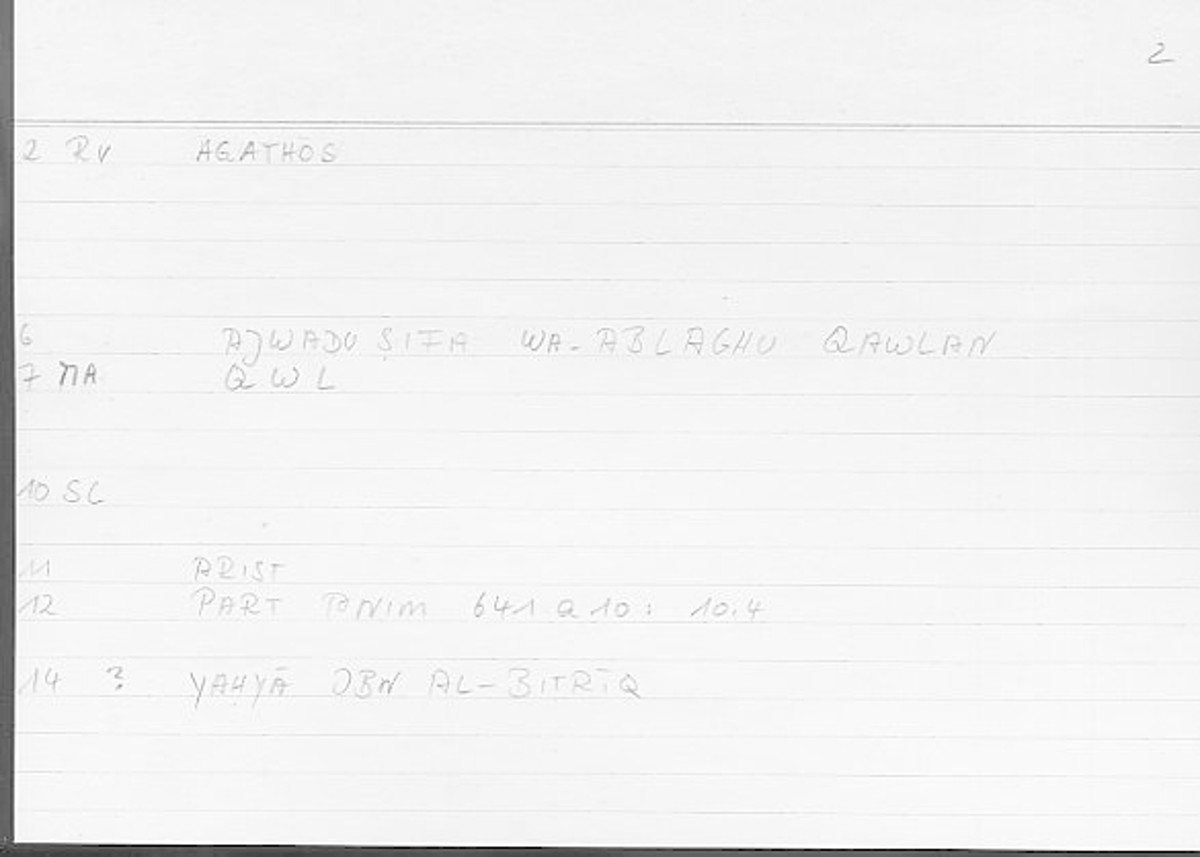 2
2 RV AGATHOS
6 AJWADU ṢIFA WA-ABLAGHU QAWLAN
7 MA QWL
10 SG
11 ARIST
12 PART ANIM 641 a 10: 10.4
14 ? YAḤYĀ IBN AL-BIṬRĪQ